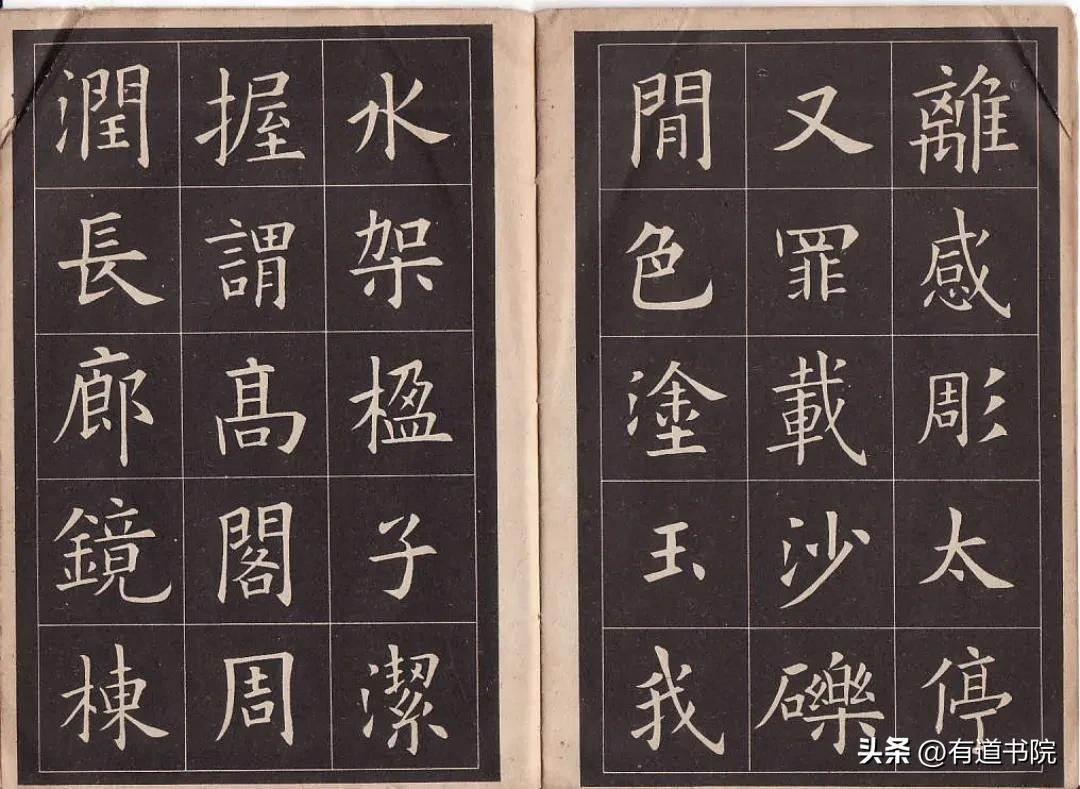 離感彫太停
又罪載沙礫
閒色塗玉我
水架楹子潔
握謂髙閣周
潤長廊鏡棟
头条 @有道书院